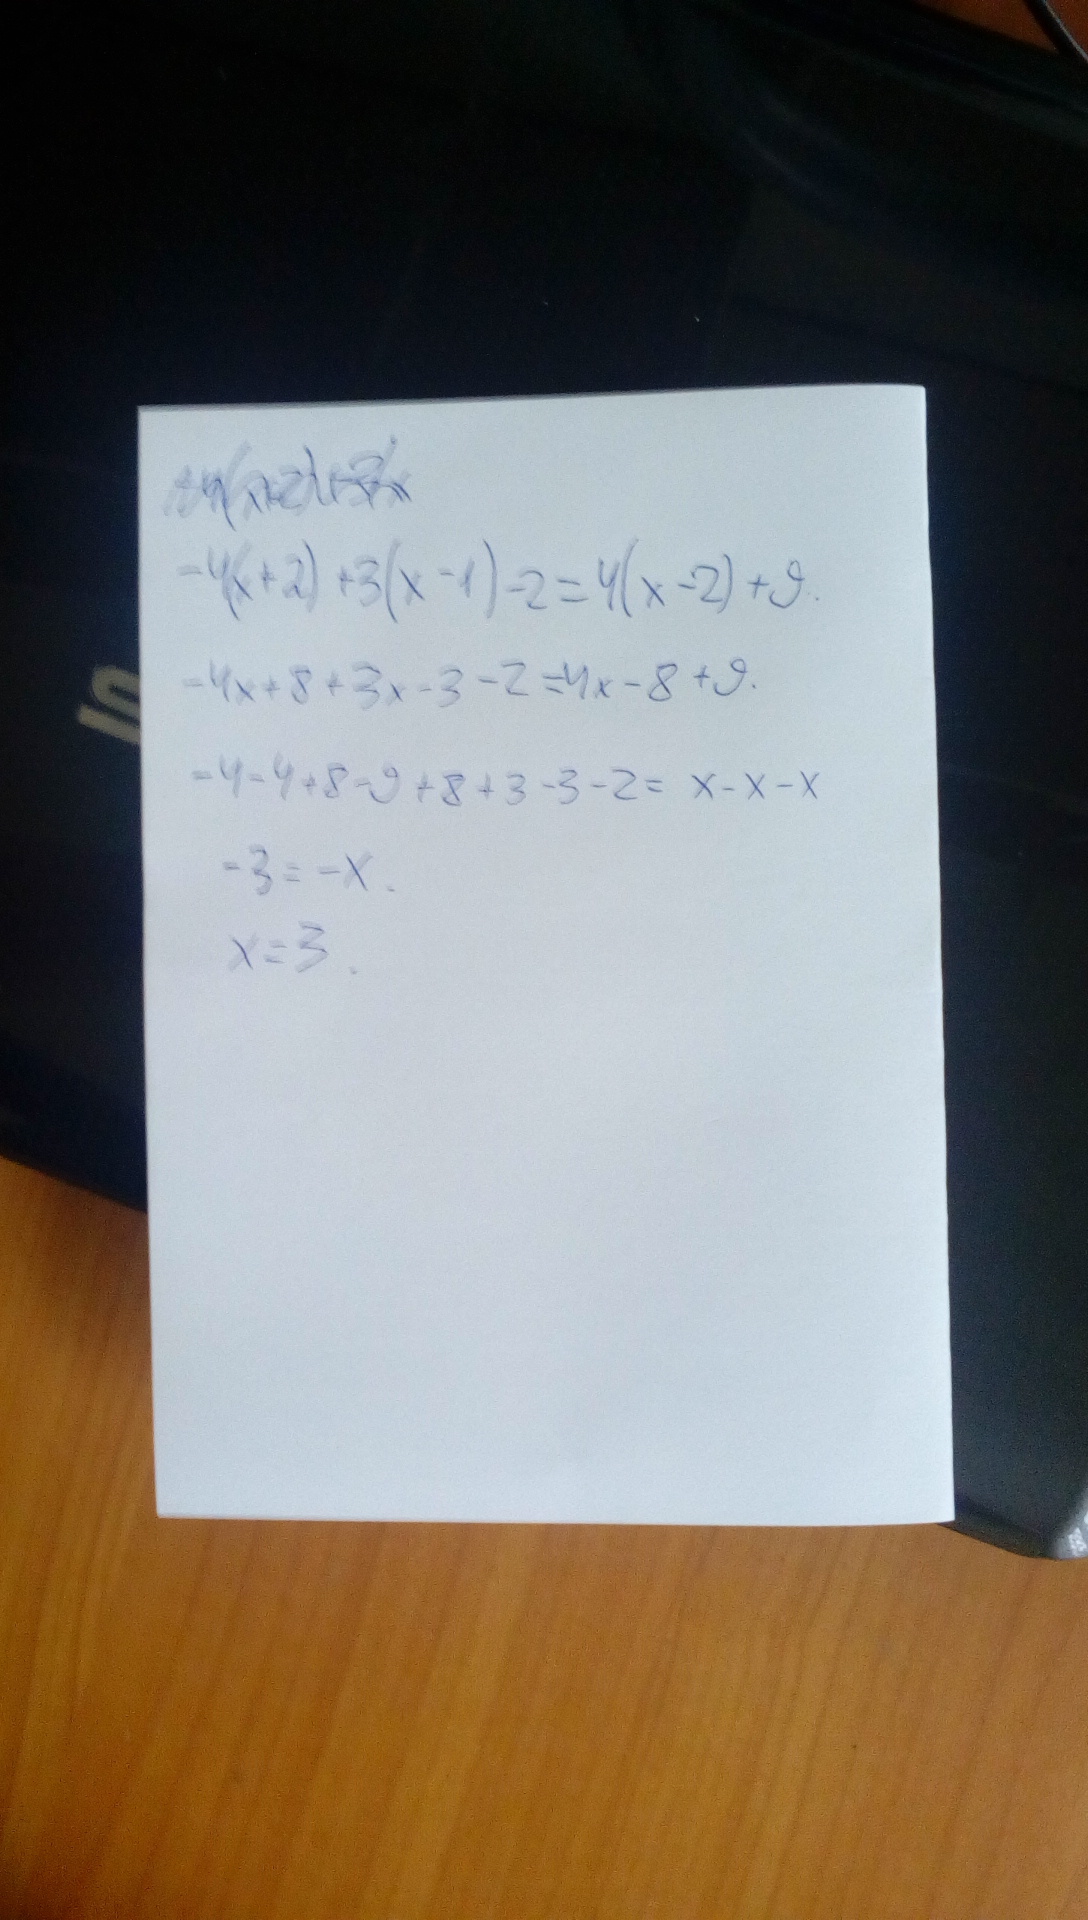 -4(x+2)+3(x-1)-2=4(x-2)+9.
-4x+8+3x-3-2=4x-8+9.
-4-4+8-9+8+3-3-2= x-x-x
-3=-x.
x=3.